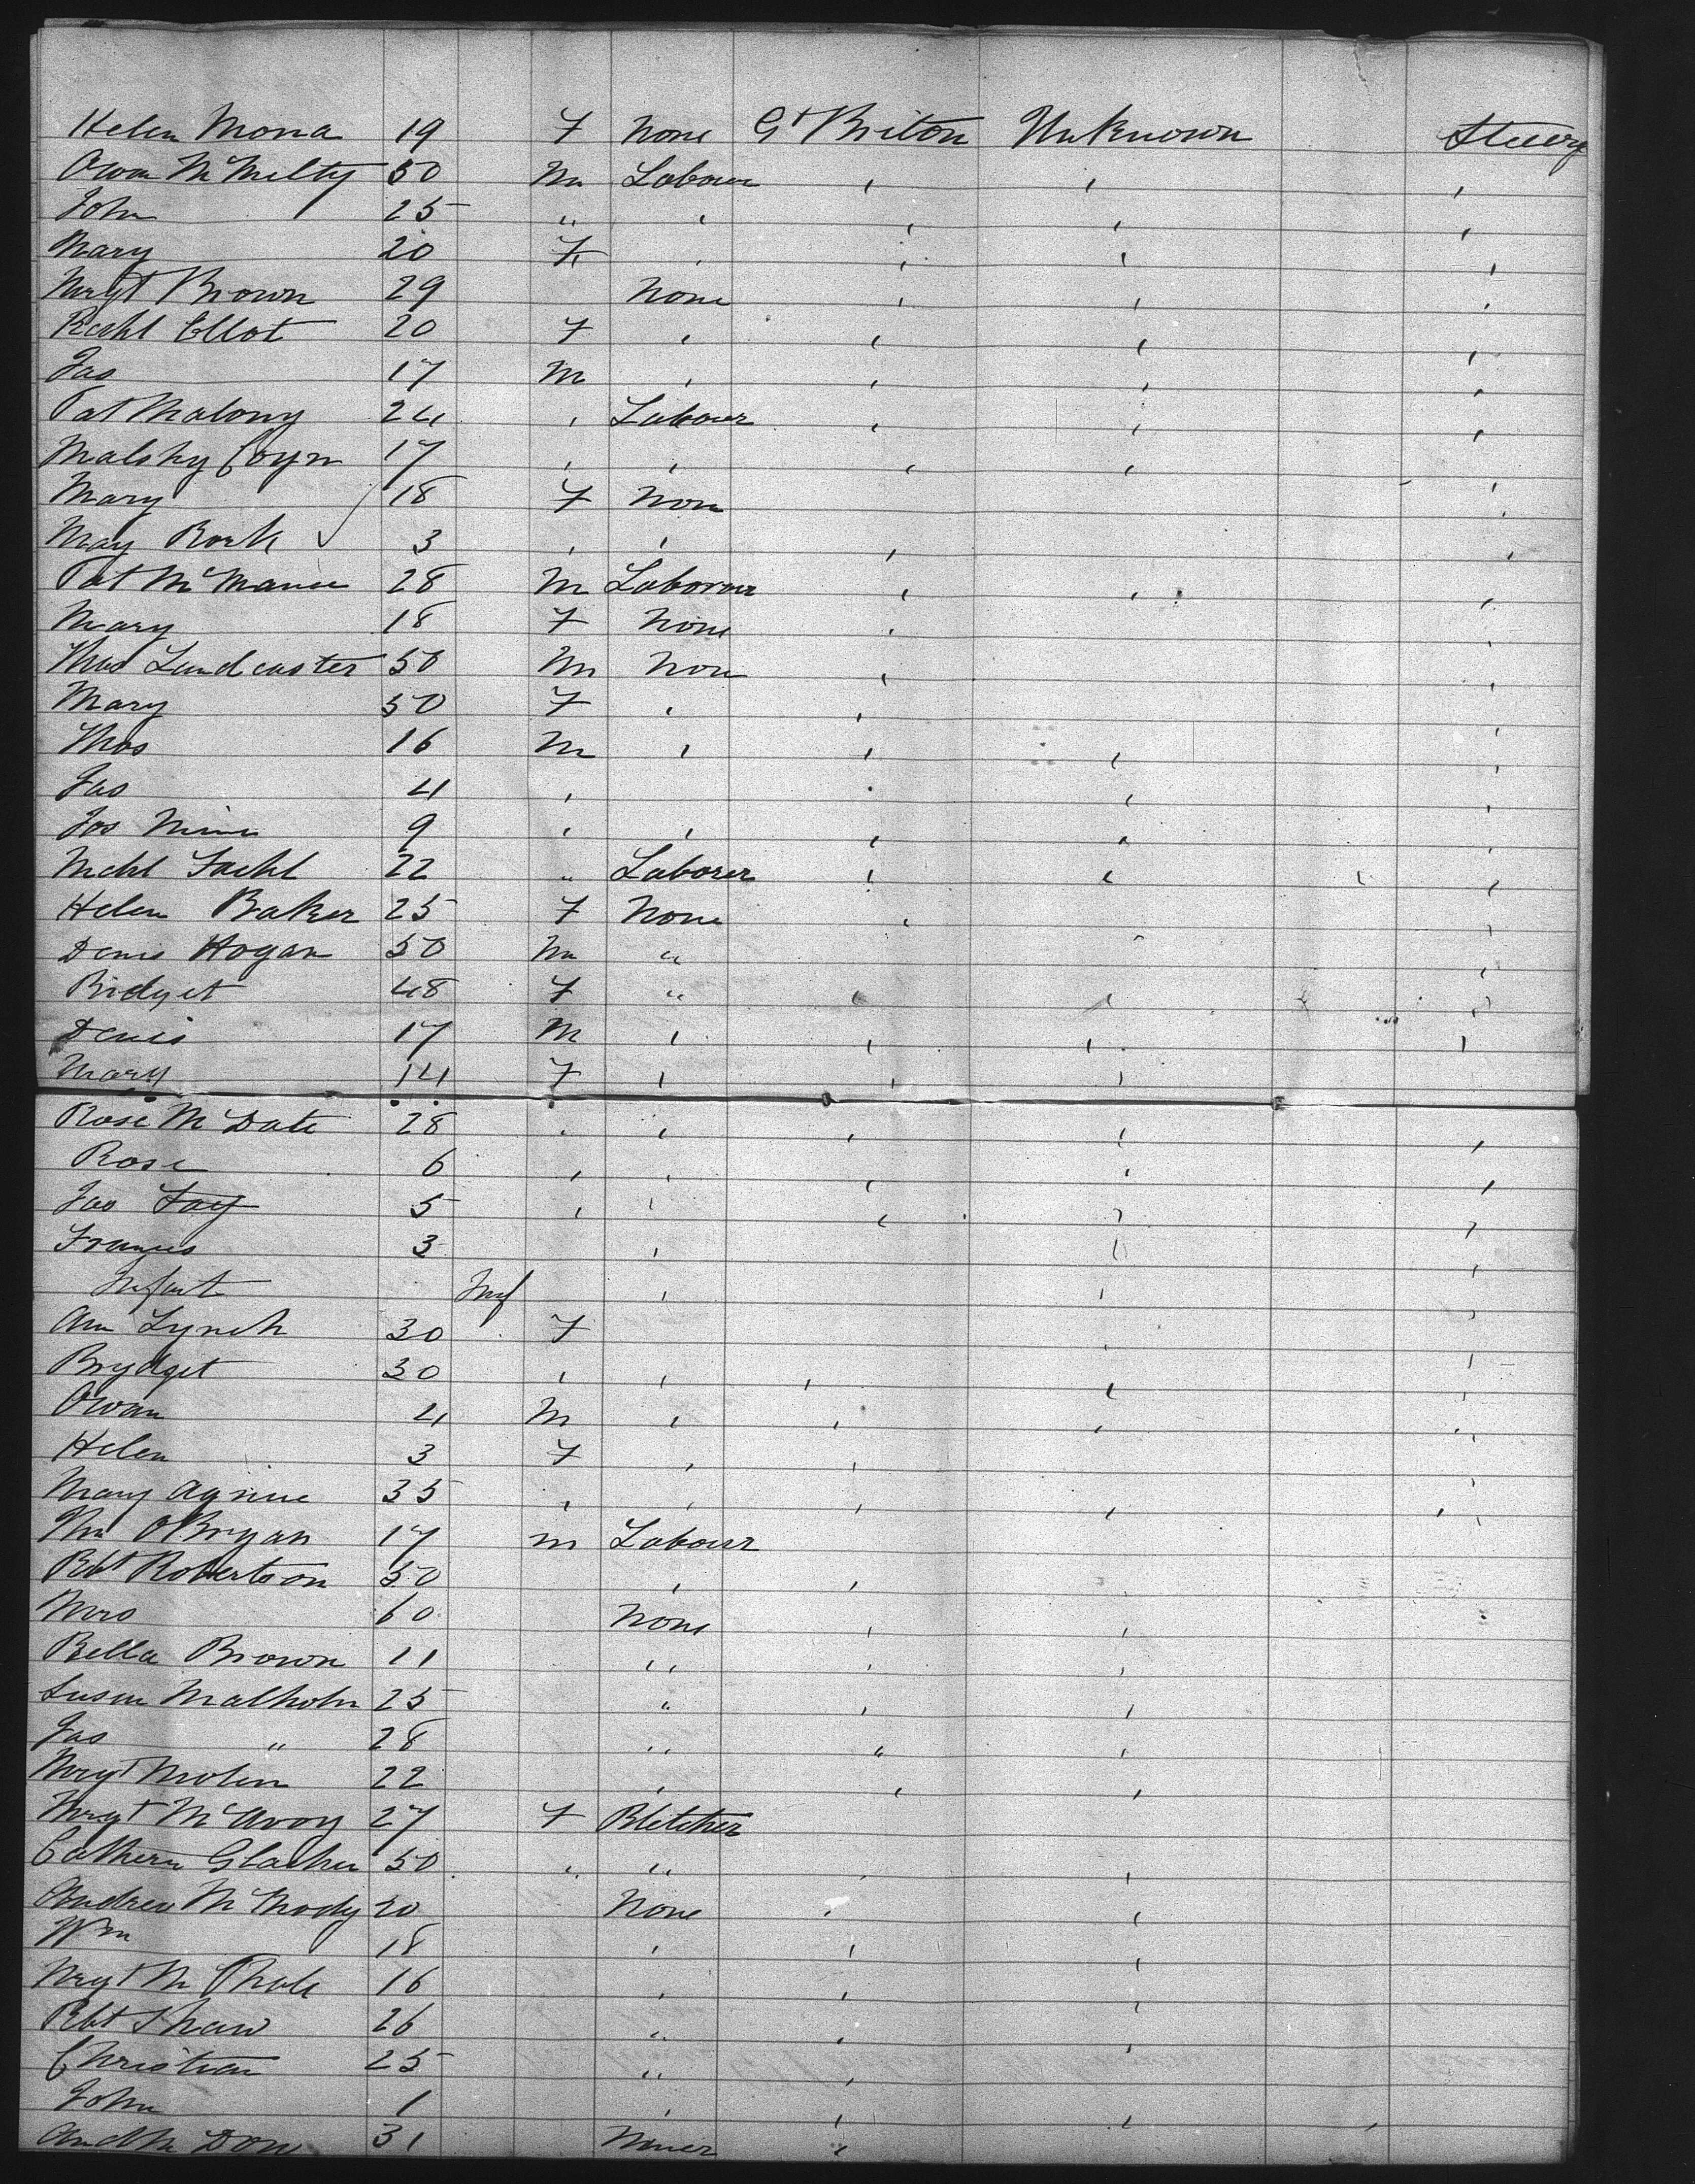 Helen Mona 19 F None Gt Briton Unknown
Owen McMelty 50 M Labour , , ,
John 25 " , , , ,
Mary 20 F , , , ,
Mrgt Brown 29 None , , ,
Ellot 20 F , , , ,
Jas 17 M , , , ,
Pat Malony 24 , Labour , , ,
Malshy Coyn 17 , , , , ,
Mary 18 F Non ,
May Rork 3 , , , ,
Pat McManu 28 M Laborour , , ,
Mary 18 F None , ,
Thos Landcaster 50 M Non , ,
Mary 50 F , , ,
Thos 16 M , , , ,
Jas 4 , , , ,
Jos 9 , , , , ,
Mchl 22 " Laborer , , ,
Helen Baker 25 F None , ,
Denis Hogan 50 M " ,
Bridget 48 F " , , ,
Denis 17 M , , , ,
Mary 14 F , , ,
Rose McDate 28 , , , , ,
Rose 6 , , , , ,
Jas Fay 5 , , , , ,
Frances 3 , , ,
Infant Inf , , ,
Ann Lynch 30 F , ,
Brydget 30 , , , , ,
Owan 4 M , , , ,
Helen 3 F , , ,
Mary Agnine 35 , , , , ,
Wm OBryan 17 M Labour
Rbt Robertson 50 , ,
Mrs 60 None , ,
Bella Brown 11 " , ,
Susan Malholn 25 " , ,
Jas " 28 " " ,
Mrgt Molen 22 , , ,
Mrgt McAvoy 27 F Bletcher
Cathern Glasher 50 " " ,
Andrew 20 None , ,
Wm 18 , , ,
Mrgt Mc 16 , , ,
Rbt Shaw 26 " , ,
Christian 25 " ,
John 1 , , ,
31